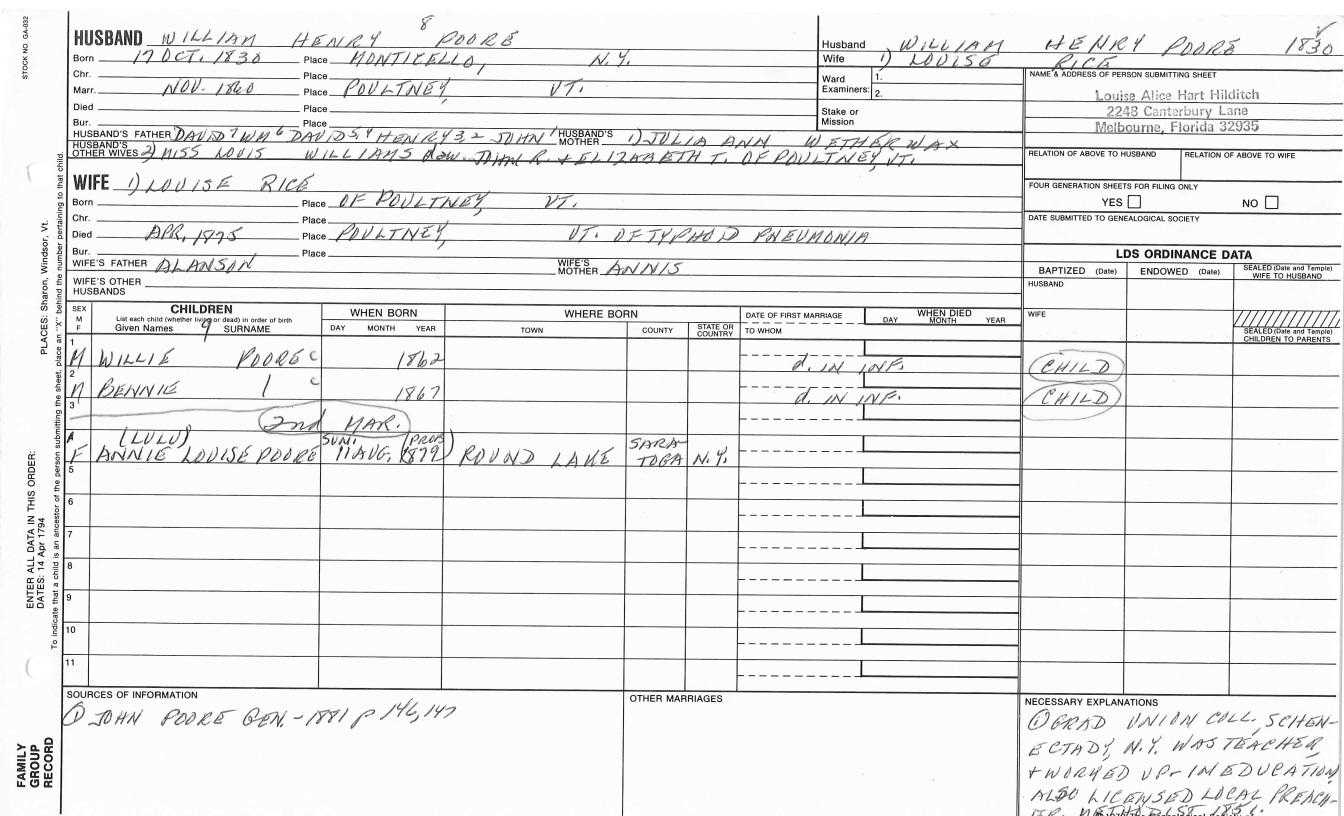 STOCK NO. GA-032
8
HUSBAND WILLIAM HENRY POORE
Born 17 OCT. 1830 Place MONTICELLO, N.Y.
Chr. Place
Marr. NOV. 1860 Place POULTNEY, VT.
Died Place
Bur. Place
HUSBAND'S FATHER DAVID 7 WM 6 DAVID 5,4 HENRY 3,2 JOHN 1 HUSBAND'S MOTHER 1) JULIA ANN WETHERWAX
HUSBAND'S OTHER WIVES 2) MISS LOUIS WILLIAMS daw. JOHN R. + ELIZABETH T. OF POULTNEY, VT.
WIFE 1) LOUISE RICE
Born Place OF POULTNEY, VT.
Chr. Place
Died APR, 1875 Place POULTNEY, VT. OF TYPHOID PNEUMONIA
Bur. Place
WIFE'S FATHER ALANSON WIFE'S MOTHER ANNIS
WIFE'S OTHER HUSBANDS
Husband WILLIAM HENRY POORE 1830
Wife 1) LOUISE RICE
Ward Examiners: 1.
2.
Stake or Mission
NAME & ADDRESS OF PERSON SUBMITTING SHEET
Louise Alice Hart Hilditch
2248 Canterbury Lane
Melbourne, Florida 32935
RELATION OF ABOVE TO HUSBAND RELATION OF ABOVE TO WIFE
FOUR GENERATION SHEETS FOR FILING ONLY
YES NO
DATE SUBMITTED TO GENEALOGICAL SOCIETY
LDS ORDINANCE DATA
BAPTIZED (Date) ENDOWED (Date) SEALED (Date and Temple) WIFE TO HUSBAND
HUSBAND
WIFE
SEALED (Date and Temple) CHILDREN TO PARENTS
SEX M F CHILDREN WHEN BORN WHERE BORN DATE OF FIRST MARRIAGE WHEN DIED
List each child (whether living or dead) in order of birth
Given Names 9 SURNAME DAY MONTH YEAR TOWN COUNTY STATE OR COUNTRY TO WHOM DAY MONTH YEAR
1 M WILLIE POORE c 1862 d. IN INF. CHILD
2 M BENNIE c 1867 d. IN INF. CHILD
3 2nd MAR.
4 F (LULU) ANNIE LOUISE POORE SUN. 11 AUG. (PROB 1879) ROUND LAKE SARATOGA N.Y.
5
6
7
8
9
10
11
SOURCES OF INFORMATION
① JOHN POORE GEN. - 1881 p 146, 147
OTHER MARRIAGES
NECESSARY EXPLANATIONS
① GRAD UNION COLL. SCHEN-
ECTADY, N.Y. WAS TEACHER,
+ WORKED UP IN EDUCATION,
ALSO LICENSED LOCAL PREACH-
ER, METHODIST
PLACES: Sharon, Windsor, Vt.
ENTER ALL DATA IN THIS ORDER:
DATES: 14 Apr 1794
To indicate that a child is an ancestor of the person submitting the sheet, place an "X" behind the number pertaining to that child.
FAMILY
GROUP
RECORD